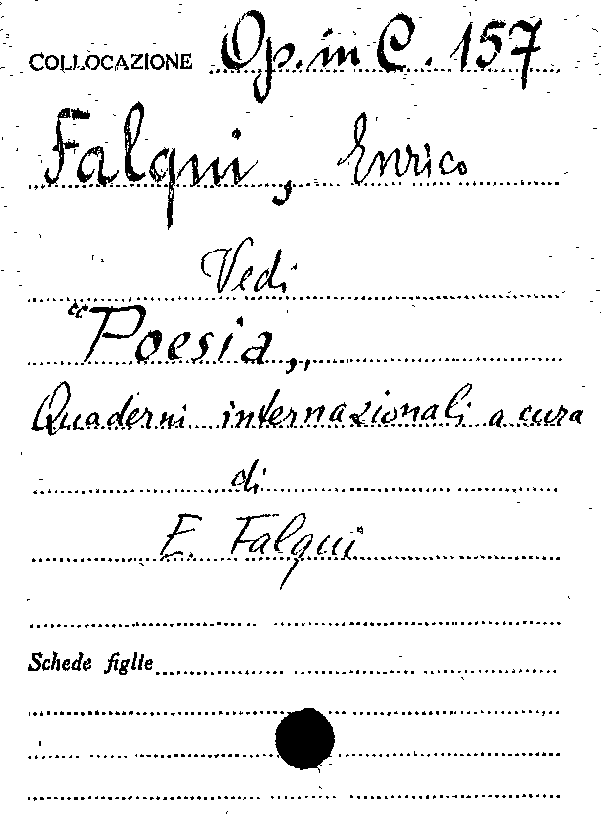 COLLOCAZIONE Op. in C. 157
Falqui, Enrico
Vedi
"Poesia„
Quaderni internazionali a cura
di
E. Falqui
Schede figlie